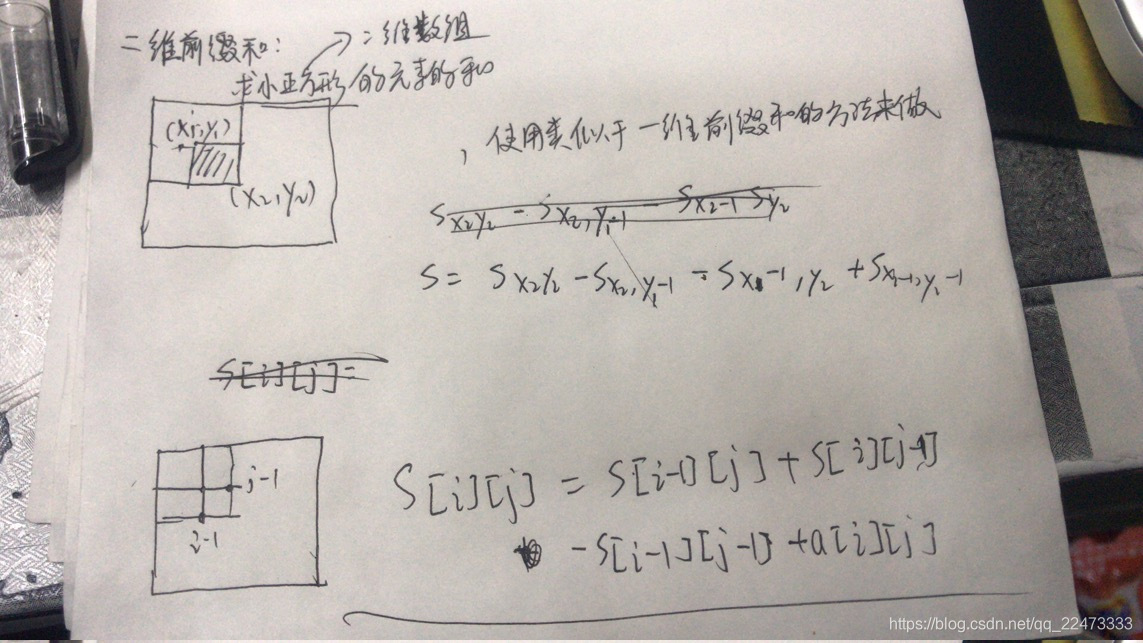 二维前缀和:
二维数组
求小正方形的元素的和
(x1,y1)
(x2,y2)
, 使用类似于一维前缀和的方法来做
Sx2y2 - Sx2,y1-1 - Sx2-1 Sy2
S = Sx2y2 - Sx2,y1-1 - Sx1-1,y2 + Sx1-1,y1-1
S[i][j]=
j-1
i-1
S[i][j] = S[i-1][j] + S[i][j-1]
-S[i-1][j-1] + a[i][j]
https://blog.csdn.net/qq_22473333